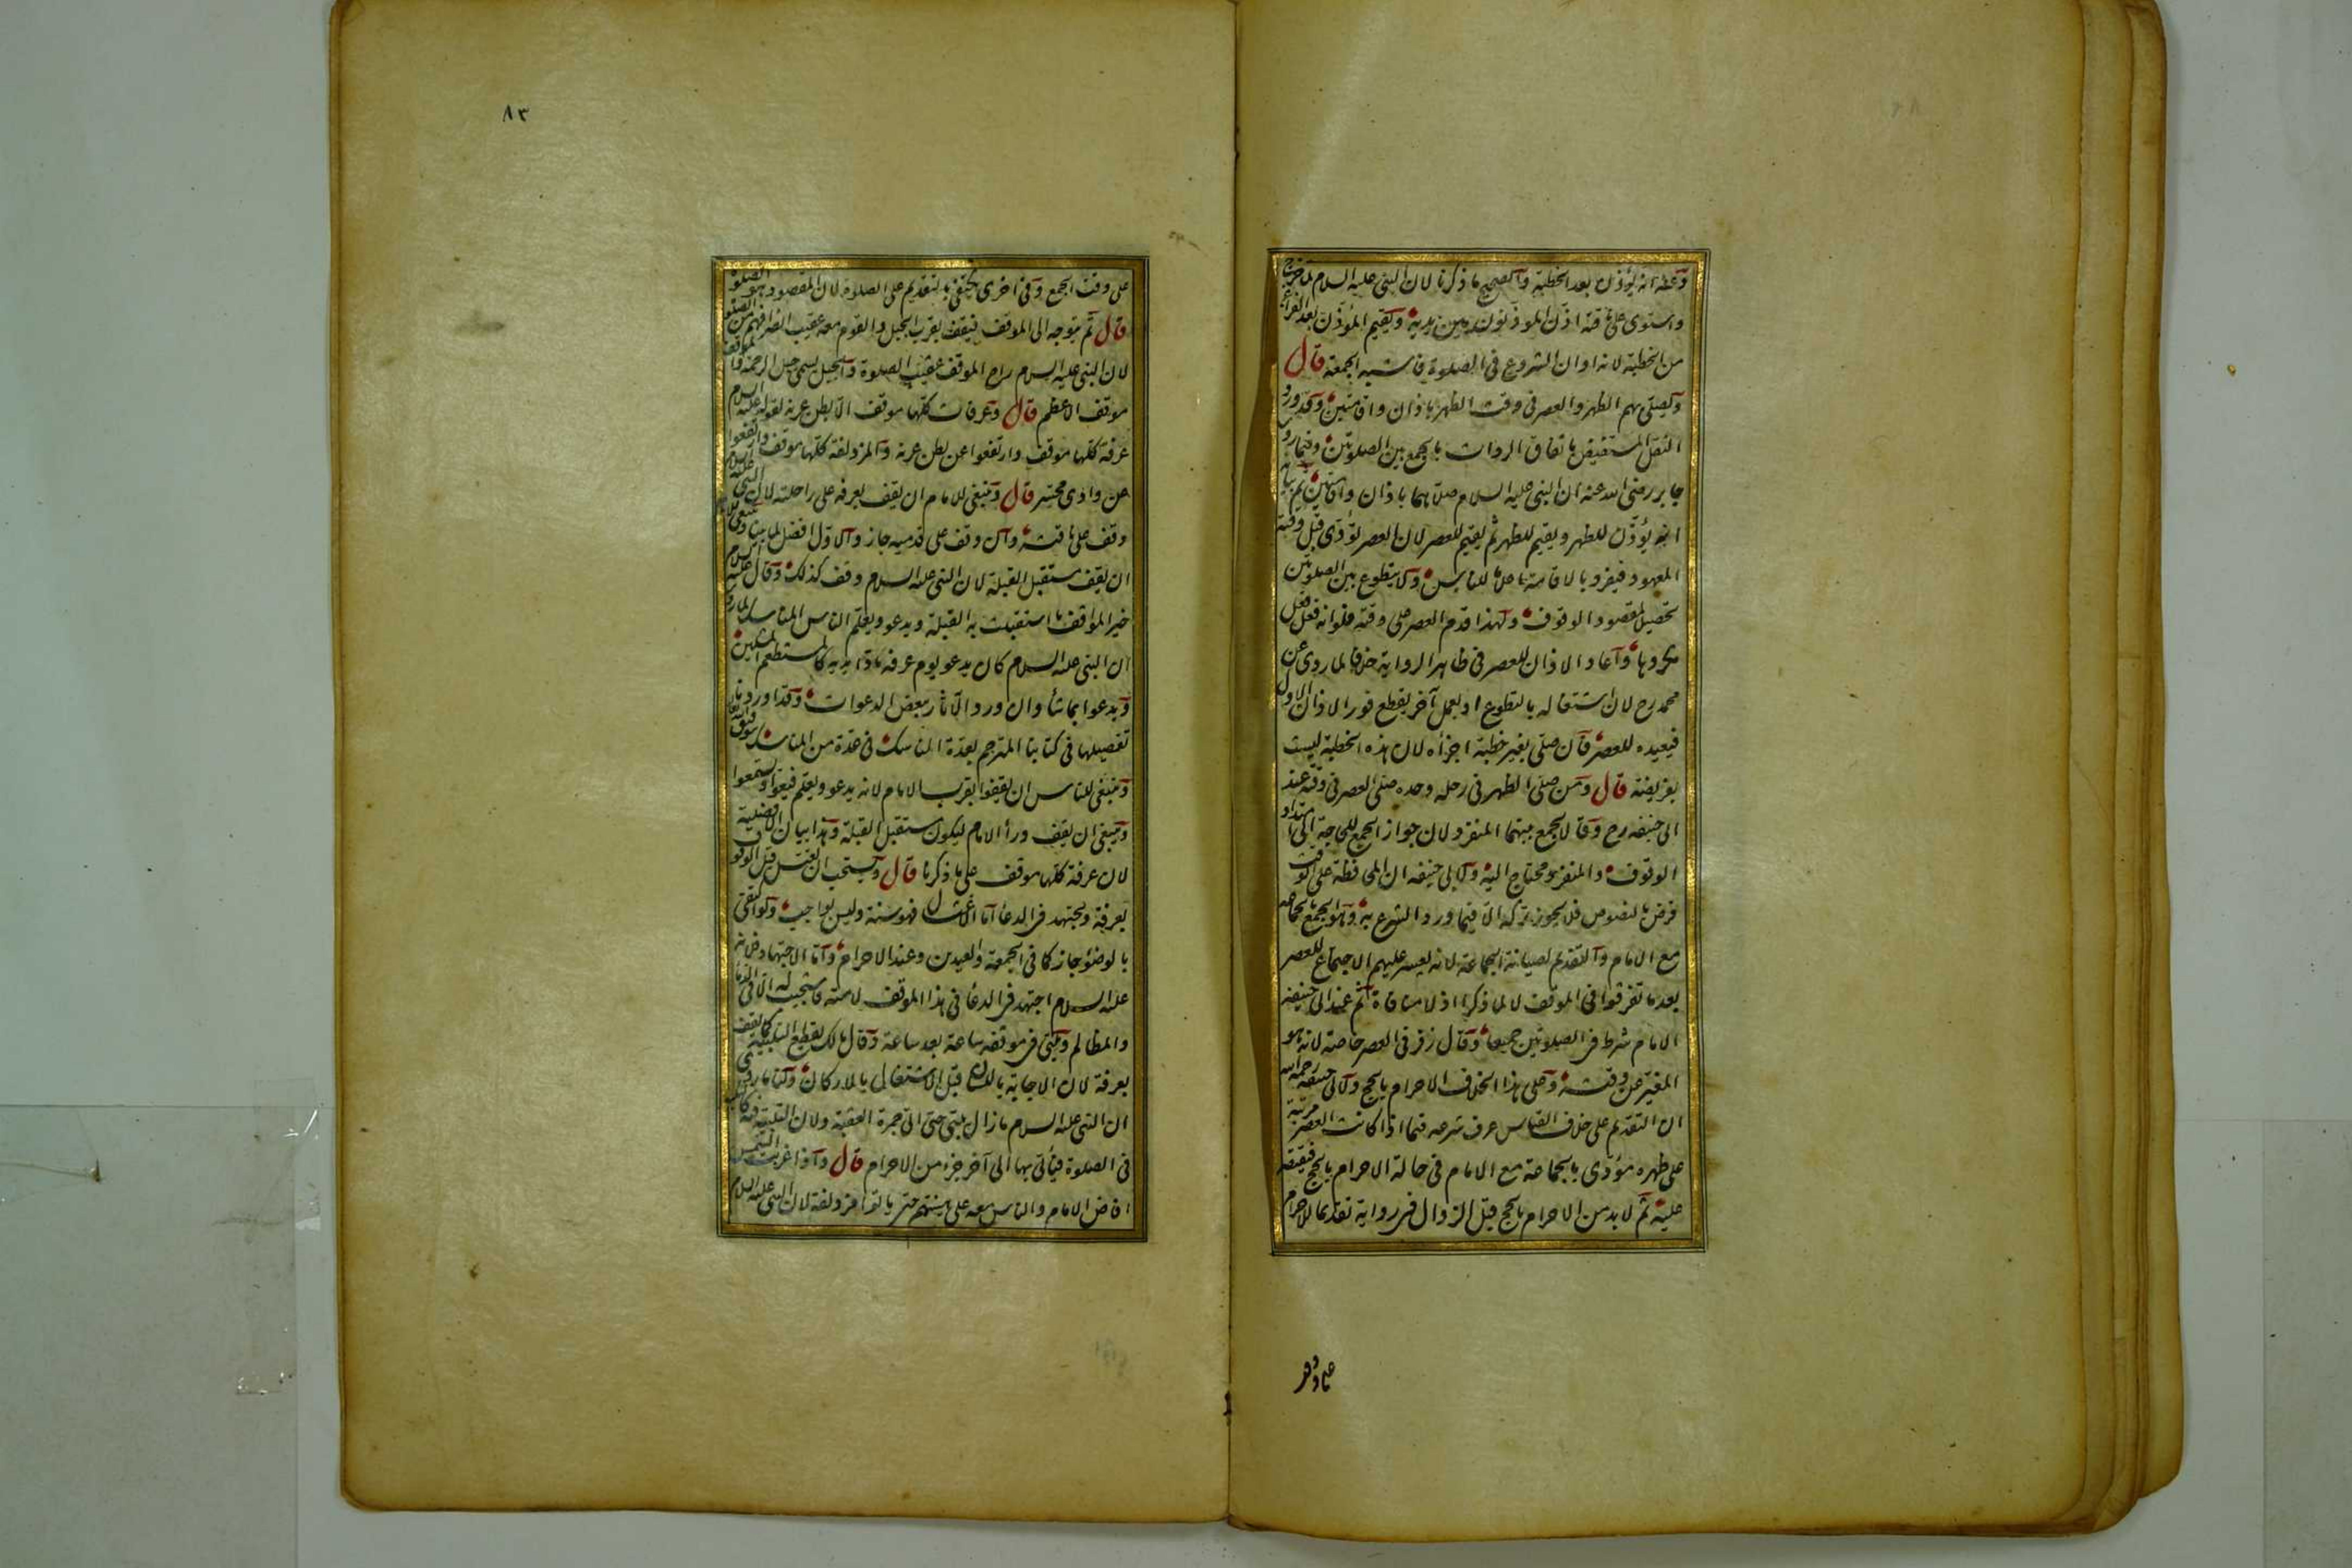 وعنه انه يؤذن بعد الخطبة والصحيح ما ذكرنا لان النبى عليه السلام لما خرج
واستوى على ناقته اذن المؤذنون بين يديه ويقيم المؤذن بعد الفراغ
من الخطبة لانه اوان الشروع فى الصلوة فاشبه الجمعة قال
ويصلى بهم الظهر والعصر فى وقت الظهر باذان واقامتين وقد ورد
النقل المستفيض باتفاق الرواة بالجمع بين الصلوتين وفيما روى
جابر رضى الله عنه ان النبى عليه السلام صلاهما باذان واقامتين ثم بيانه
انه يؤذن للظهر ويقيم للظهر ثم يقيم للعصر لان العصر تؤدى قبل وقته
المعهود فيفرد بالاقامة اعلاما للناس ولا يتطوع بين الصلوتين
تحصيلا لمقصود الوقوف ولهذا قدم العصر على وقته فلو انه فعل فعل
مكروها واعاد الاذان للعصر فى ظاهر الرواية خلافا لما روى عن
محمد رح لان اشتغاله بالتطوع او بعمل آخر يقطع فور الاذان الاول
فيعيده للعصر فان صلى بغير خطبة اجزأه لان هذه الخطبة ليست
بفريضة قال ومن صلى الظهر فى رحله وحده صلى العصر فى وقته عند
ابى حنيفة رح وقالا يجمع بينهما المنفرد لان جواز الجمع للحاجة الى امتداد
الوقوف والمنفرد محتاج اليه ولابى حنيفة ان المحافظة على الوقت
فرض بالنصوص فلا يجوز تركه الا فيما ورد الشرع به وهو الجمع بالجماعة
مع الامام والتقديم لصيانة الجماعة لانه يعسر عليهم الاجتماع للعصر
بعد ما تفرقوا فى الموقف لا لما ذكرا اذ لا منافاة ثم عند ابى حنيفة
الامام شرط فى الصلوتين جميعا وقال زفر فى العصر خاصة لانه هو
المغير عن وقته وعلى هذا الخلاف الاحرام بالحج ولابى حنيفة رحمه الله
ان التقديم على خلاف القياس عرف شرعه فيما اذا كانت العصر مرتبة
على ظهره مؤدى بالجماعة مع الامام فى حالة الاحرام بالحج فيقتصر
عليه ثم لابد من الاحرام بالحج قبل الزوال فى رواية تقديما للاحرام
٨٣
على وقت الجمع وفى اخرى يكتفى بالتقديم على الصلوة لان المقصود هو الصلوة
قال ثم يتوجه الى الموقف فيقف بقرب الجبل والقوم معه عقيب انصرافهم من الصلوة
لان النبى عليه السلام راح الموقف عقيب الصلوة والجبل يسمى جبل الرحمة والموقف
موقف الاعظم قال وعرفات كلها موقف الا بطن عرنة لقوله عليه السلام
عرفة كلها موقف وارتفعوا عن بطن عرنة والمزدلفة كلها موقف وارتفعوا
عن وادى محسر قال وينبغى للامام ان يقف بعرفة على راحلته لان النبى عليه السلام
وقف على ناقته وان وقف على قدميه جاز والاول افضل لما بينا وينبغى
ان يقف مستقبل القبلة لان النبى عليه السلام وقف كذلك وقال عليه السلام
خير المواقف ما استقبلت به القبلة ويدعو ويعلم الناس المناسك لما روى
ان النبى عليه السلام كان يدعو يوم عرفة مادا يديه كالمستطعم المسكين
ويدعوا بما شاء وان ورد الآثار ببعض الدعوات وقد اوردنا
تفصيلها فى كتابنا المترجم بعدة الناسك فى عدة من المناسك
وينبغى للناس ان يقفوا بقرب الامام لانه يدعو ويعلم فيعوا ويستمعوا
وينبغى ان يقف وراء الامام ليكون مستقبل القبلة وهذا بيان الافضلية
لان عرفة كلها موقف على ما ذكرنا قال ويستحب ان يغتسل قبل الوقوف
بعرفة ويجتهد فى الدعاء اما الاغتسال فهو سنة وليس بواجب ولو اكتفى
بالوضوء جاز كما فى الجمعة والعيدين وعند الاحرام واما الاجتهاد فلانه
عليه السلام اجتهد فى الدعاء فى هذا الموقف لامته فاستجيب له الا فى الدماء
والمظالم ويلبى فى موقفه ساعة بعد ساعة وقال مالك يقطع التلبية كما يقف
بعرفة لان الاجابة باللسان قبل الاشتغال بالاركان ولنا ما روى
ان النبى عليه السلام ما زال يلبى حتى اتى جمرة العقبة ولان التلبية فيه كالتكبير
فى الصلوة فيأتى بها الى آخر جزء من الاحرام قال واذا غربت الشمس
افاض الامام والناس معه على هينتهم حتى يأتوا مزدلفة لان النبى عليه السلام